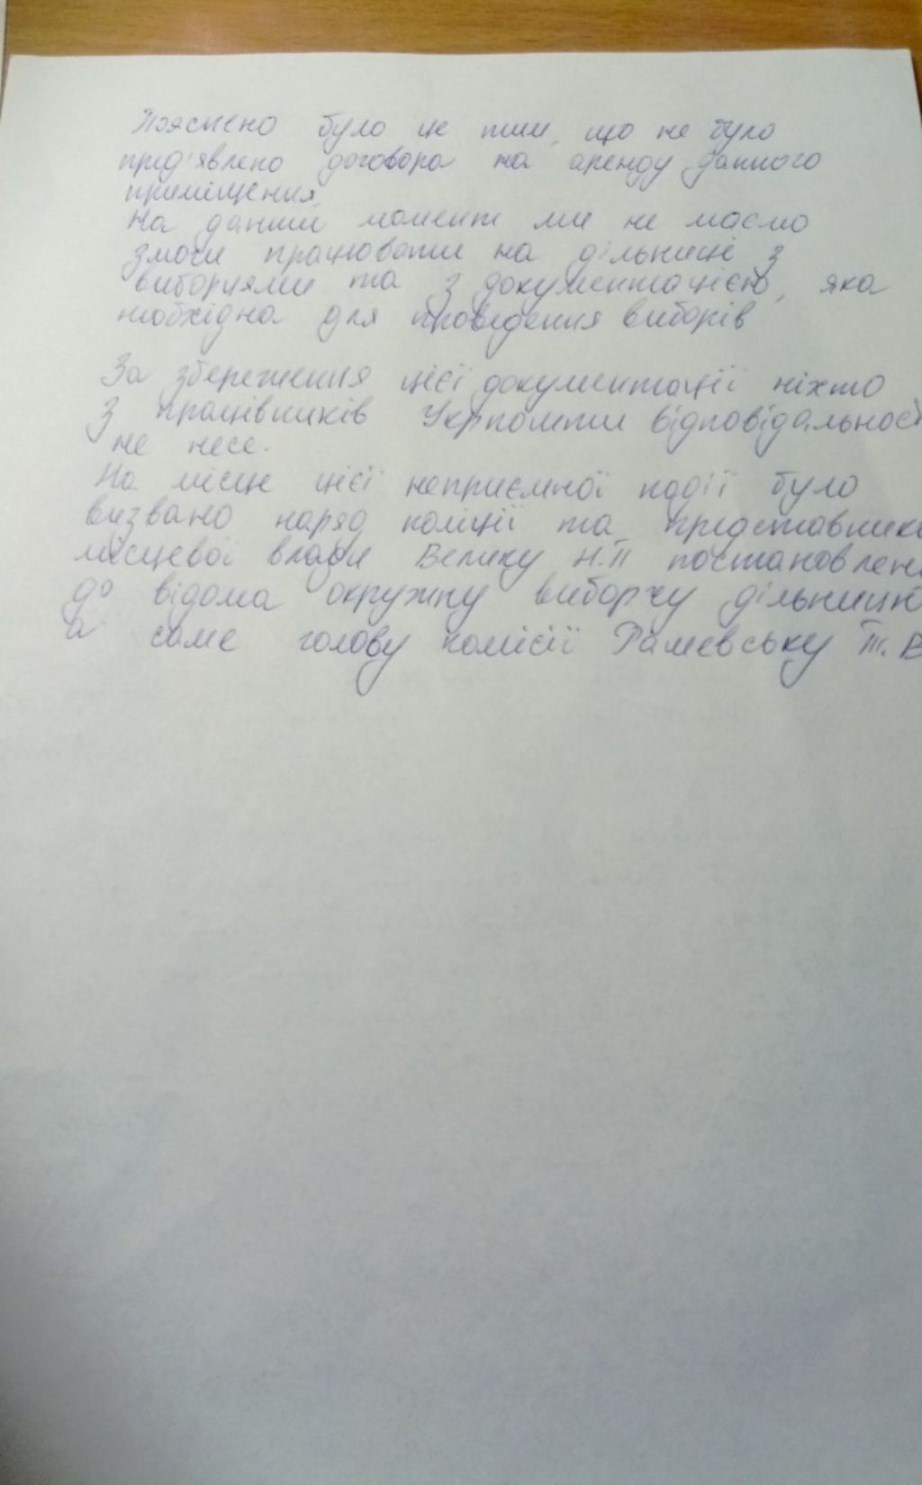 Пояснено було це тим, що не було
пред'явлено договора на аренду данного
приміщення.
На даний момент ми не маємо
змоги працювати на дільниці з
виборцями та з документацією, яка
необхідна для проведення виборів
За збереження цієї документації ніхто
з працівників Укрпошти відповідальност
не несе.
На місце цієї неприємної події було
визвано наряд поліції та представник
місцевої влади Велику Н.П постановлен
до відома окружну виборчу дільницю
а саме голову комісії Рамевську Т. В